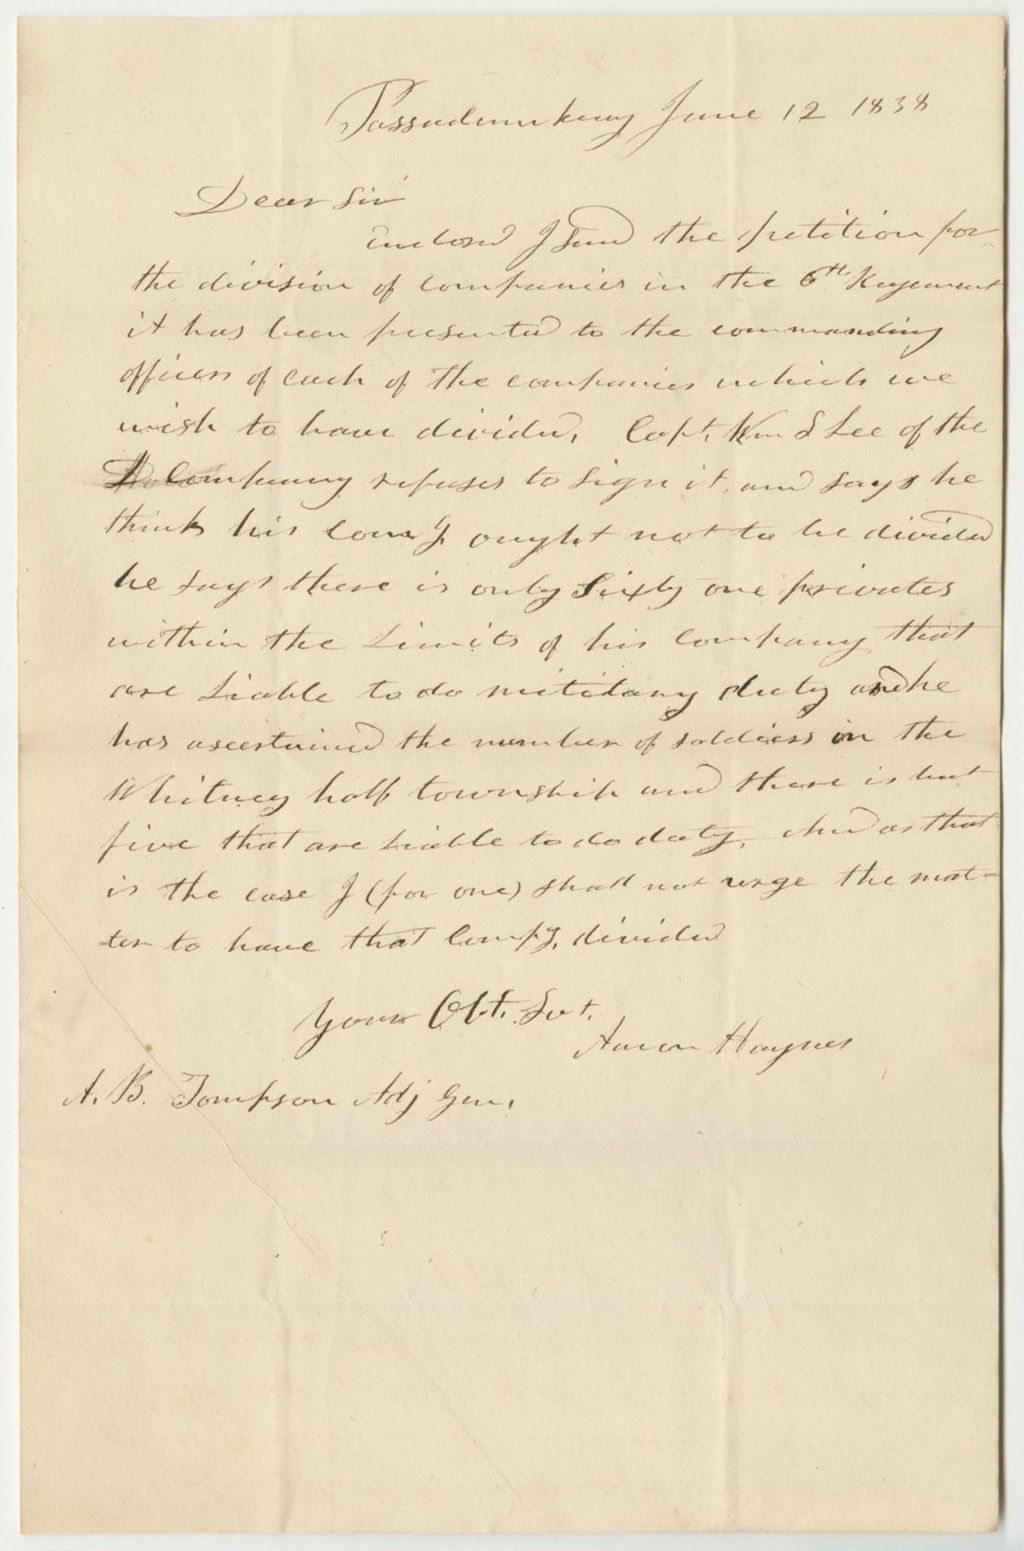 Passadumkeag June 12 1838
Dear Sir
Enclosed I send the petition for
the division of companies in the 6th Regement
it has been presented to the commanding
officers of each of the companies which we
wish to have divided, Capt. Wm S Lee of the
D Company refuses to sign it, and says he
think his Comy. ought not to be divided
he says there is only Sixty one privates
within the Limits of his Company that
are Liable to do mititary duty and he
has ascertained the number of soldiers in the
Whitney half township and there is but
five that are Liable to do duty, And as that
is the case I (for one) shall not urge the mat-
ter to have that Compy, divided
Your Obt. Svt.
Aaron Haynes
A. B. Tompson Adj Gen.